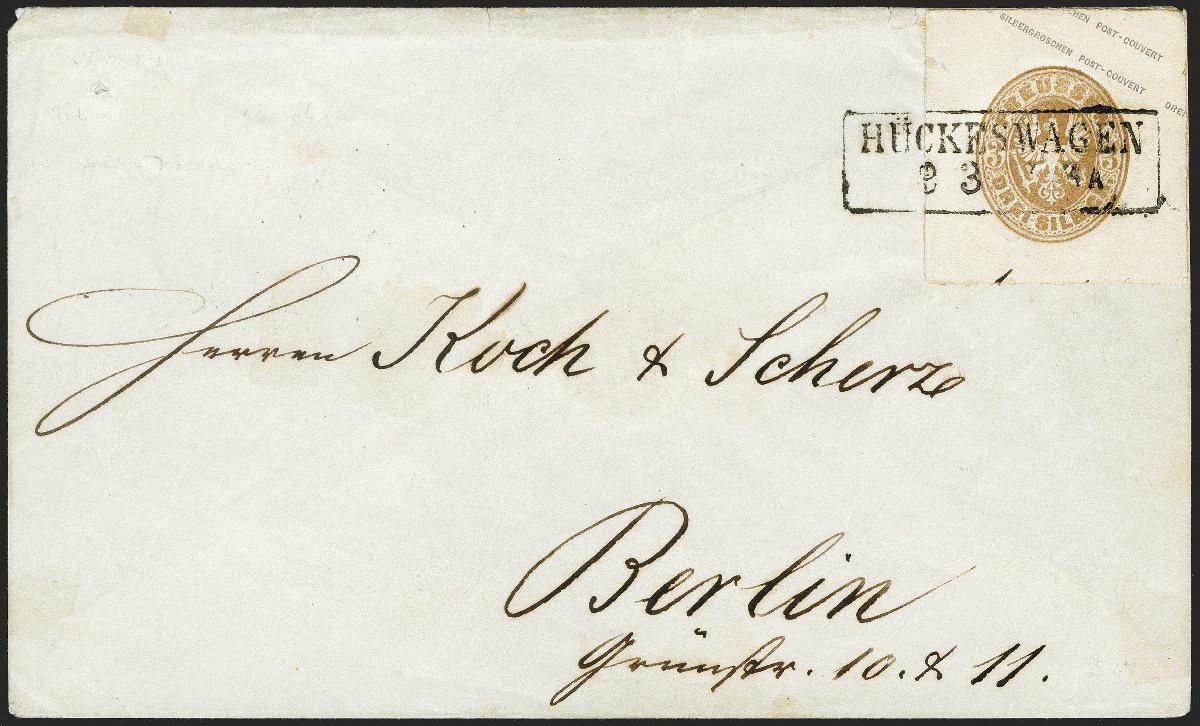 CHEN POST-COUVERT
SILBERGROSCHEN POST-COUVERT DREI
HÜCKESWAGEN
2 3 4A
Herren Koch & Scherz
Berlin
Grünstr. 10. & 11.